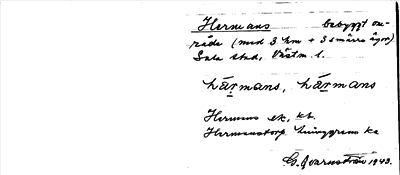 Hermans bebyggt om-
råde (med 3 hm + 3 smärre ägor)
Sala stad, Västm. l.
härmans, härmans
Hermans ek, kt.
Hermanstorp ka
G. Qvarnström 1943.